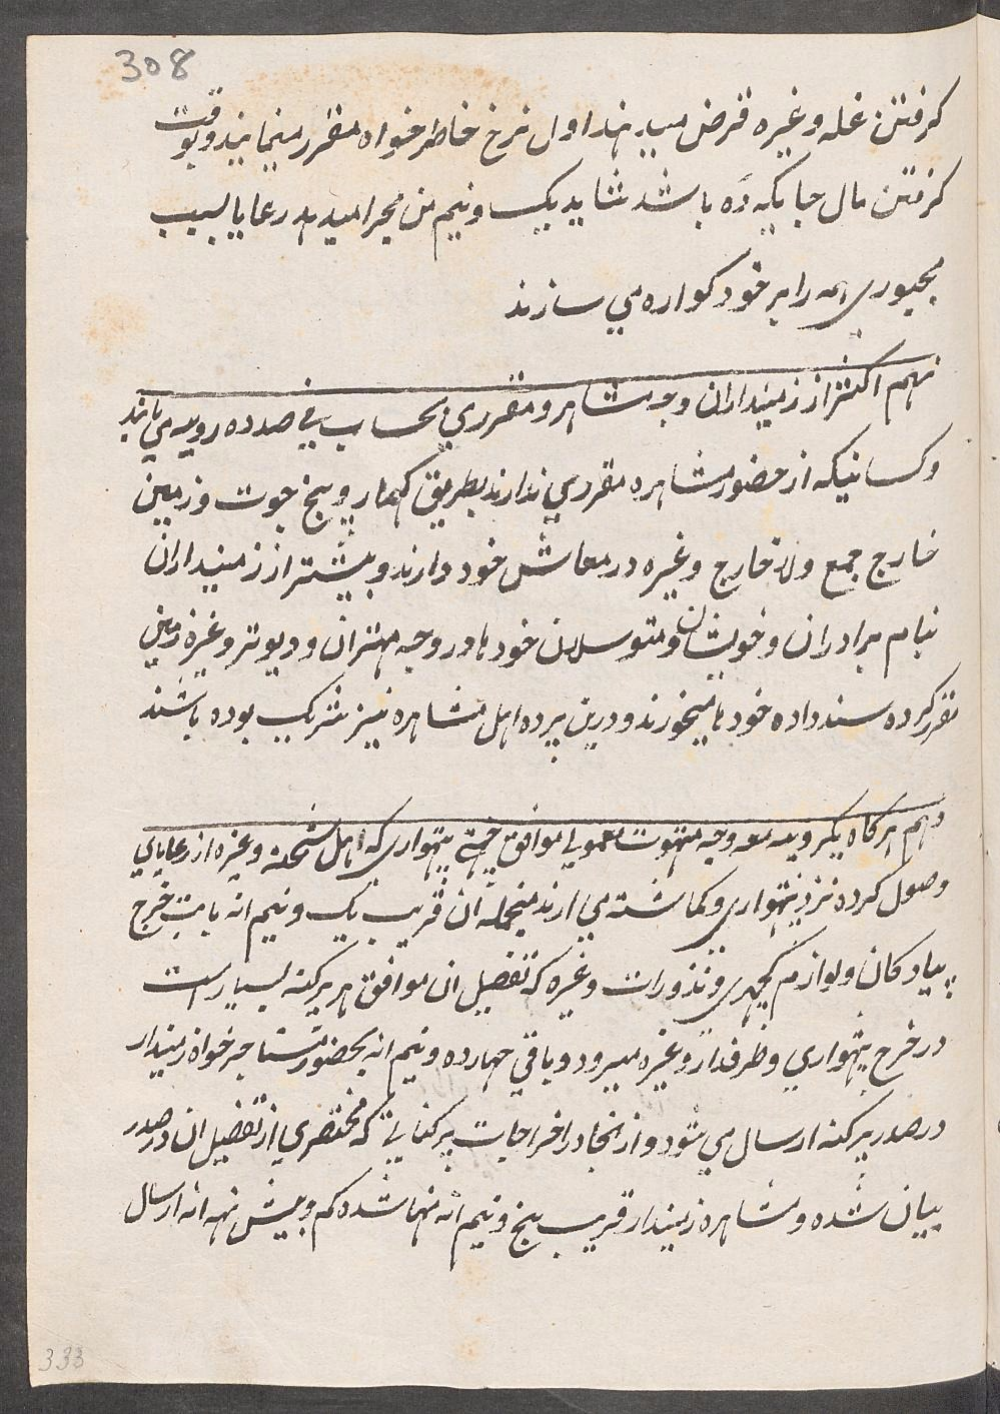 308
کرفتن غله وغیره قرض میدهند اول نرخ خاطر خواه مقرر مینمایند و بوقت
کرفتن مال جائیکه ده باشد شاید یک ونیم من مجرا میدهد رعایا بسبب
مجبوری همه را بر خود کواره می سازند
نهم اکثر از زمینداران وجه مشاهره مقرری بحساب فی صد ده روپیه می یابند
وکسانیکه از حضور مشاهره مقرری ندارند بطریق کهمار و پنج جوت و زمین
خارج جمع ولا خارج وغیره در معاش خود دارند و بیشتر از زمینداران
بنام برادران و خویشان و متوسلان خودها در وجه مهتران و دیوتر وغیره زمین
مقرر کرده سند داده خودها میخورند و درین پرده اهل مشاهره نیز شریک بوده باشند
دهم هرکاه یکروپیه معه وجه متهوت معمولی موافق جهتی پتهواری که اهل شحنه وغیره از رعایای
وصول کرده نزد پتهواری و کماشته می ارند منجمله ان قریب یک ونیم انه بابت خرج
پیادکان و لوازم کچهری و نذورات وغیره که تفصیل ان موافق هر پرکنه بسیار است
در خرج پتهواری و طرفدار وغیره میرود و باقی چهارده ونیم انه بحضور مستاجر خواه زمیندار
در صدر پرکنه ارسال می شود و از انجا در اخراجات پرکناتی که مختصری از تفصیل ان در صدر
بیان شده و مشاهره زمیندار قریب پنج ونیم انه منها شده کم و بیش نهه انه ارسال
333